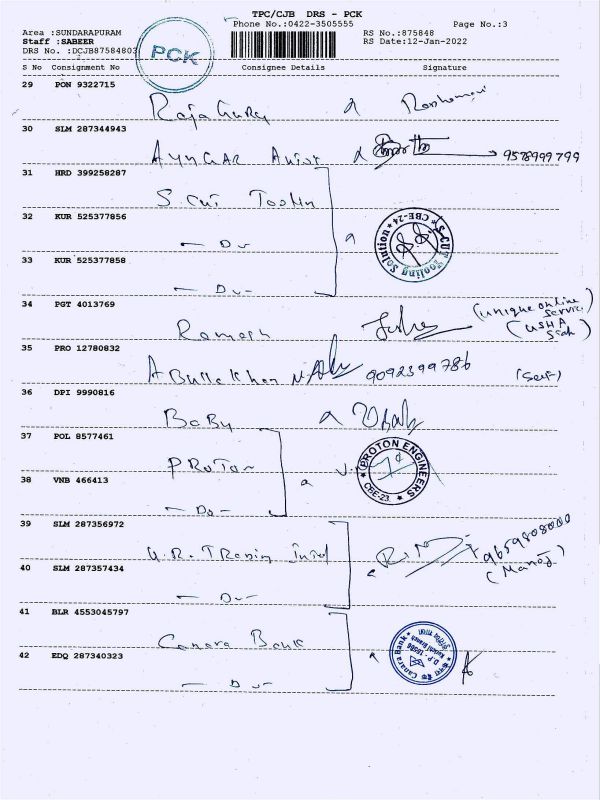 TPC/CJB DRS - PCK
Phone No.:0422-3505555 Page No.:3
Area :SUNDARAPURAM RS No.:875848
Staff :SABEER RS Date:12-Jan-2022
DRS No. :DCJB87584803
PCK
S No Consignment No Consignee Details Signature
29 PON 9322715
Raja Guru
30 SLM 287344943
9578999799
31 HRD 399258287
S. Cut
32 KUR 525377856
— Do —
S-CUT Tooling Solution ★ CBE-24 ★
33 KUR 525377858
— Do —
34 PGT 4013769
Ramesh (unique online
service)
(USHA
35 PRO 12780832
9092399786 (self)
36 DPI 9990816
BaBy
37 POL 8577461
PROTON
PROTON ENGINEERS ★ CBE-23. ★
38 VNB 466413
— Do —
39 SLM 287356972
U.R. 9659808000
(Manoj)
40 SLM 287357434
— Do —
41 BLR 4553045797
Canara Bank
Canara Bank
D.P. 16386
42 EDQ 287340323
— Do —